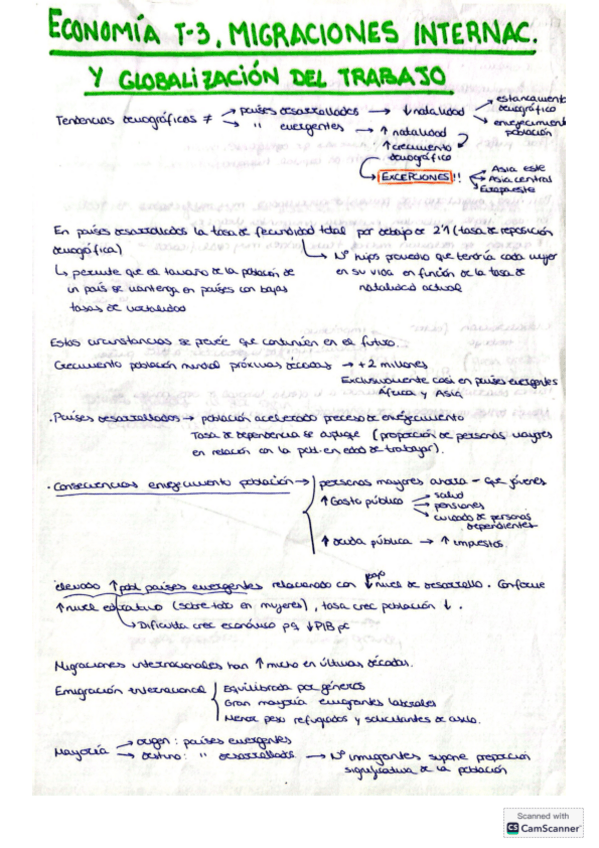 ECONOMÍA T-3. MIGRACIONES INTERNAC.
Y GLOBALIZACIÓN DEL TRABAJO
Tendencias demográficas ≠ → países desarrollados → ↓ natalidad → estancamiento demográfico
→ envejecimiento población
→ " emergentes → ↑ natalidad
↑ crecimiento demográfico
→ EXCEPCIONES!! → Asia este
→ Asia central
Europa este
En países desarrollados la tasa de fecundidad total por debajo de 2'1 (tasa de reposición
demográfica) → Nº hijos promedio que tendría cada mujer
↳ permite que el tamaño de la población de en su vida en función de la tasa de
un país se mantenga en países con bajas natalidad actual
tasas de mortalidad
Estas circunstancias se prevé que continúen en el futuro.
Crecimiento población mundial próximas décadas → +2 millones
Exclusivamente casi en países emergentes
África y Asia
· Países desarrollados → población acelerado proceso de envejecimiento
Tasa de dependencia se (proporción de personas mayores
en relación con la pobl. en edad de trabajar).
· Consecuencias envejecimiento población → personas mayores ahorra - que jóvenes
↑ Gasto público → salud
→ pensiones
→ cuidado de personas dependientes
↑ deuda pública → ↑ impuestos.
elevado ↑ pobl países emergentes relacionado con bajo ↓ nivel de desarrollo. Conforme
↑ nivel educativo (sobre todo en mujeres), tasa crec población ↓.
↳ Dificulta crec económico pq ↓ PIB pc
Migraciones internacionales han ↑ mucho en últimas décadas.
Emigración internacional { Equilibrada por géneros
Gran mayoría emigrantes laborales
Menor peso refugiados y solicitantes de asilo.
Mayoría → origen: países emergentes
→ destino: " desarrollados → Nº inmigrantes supone proporción
significativa de la población
Scanned with
CS CamScanner